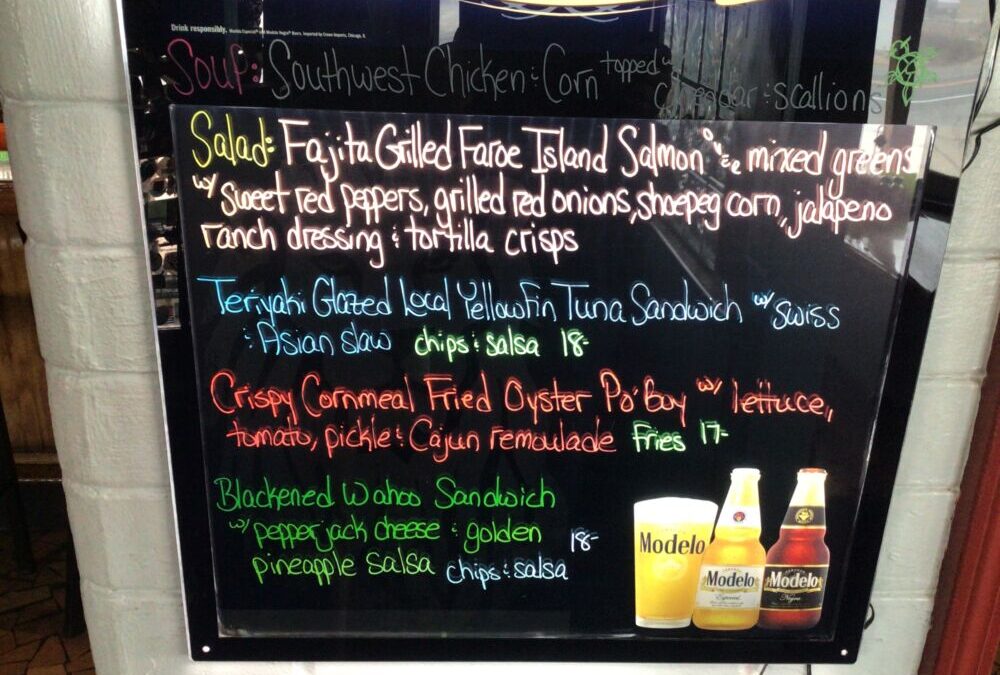 Drink responsibly.
Soup: Southwest Chicken & Corn topped w/
cheddar & scallions
Salad: Fajita Grilled Faroe Island Salmon mixed greens
w/ sweet red peppers, grilled red onions, shoepeg corn, jalapeno
ranch dressing & tortilla crisps
Teriyaki Glazed Local Yellowfin Tuna Sandwich w/ swiss
& Asian slaw chips & salsa 18-
Crispy Cornmeal Fried Oyster Po'Boy w/ lettuce,
tomato, pickle & Cajun remoulade Fries 17-
Blackened Wahoo Sandwich
w/ pepperjack cheese & golden 18-
pineapple salsa chips & salsa
Modelo
Modelo
Especial
Modelo
Negra